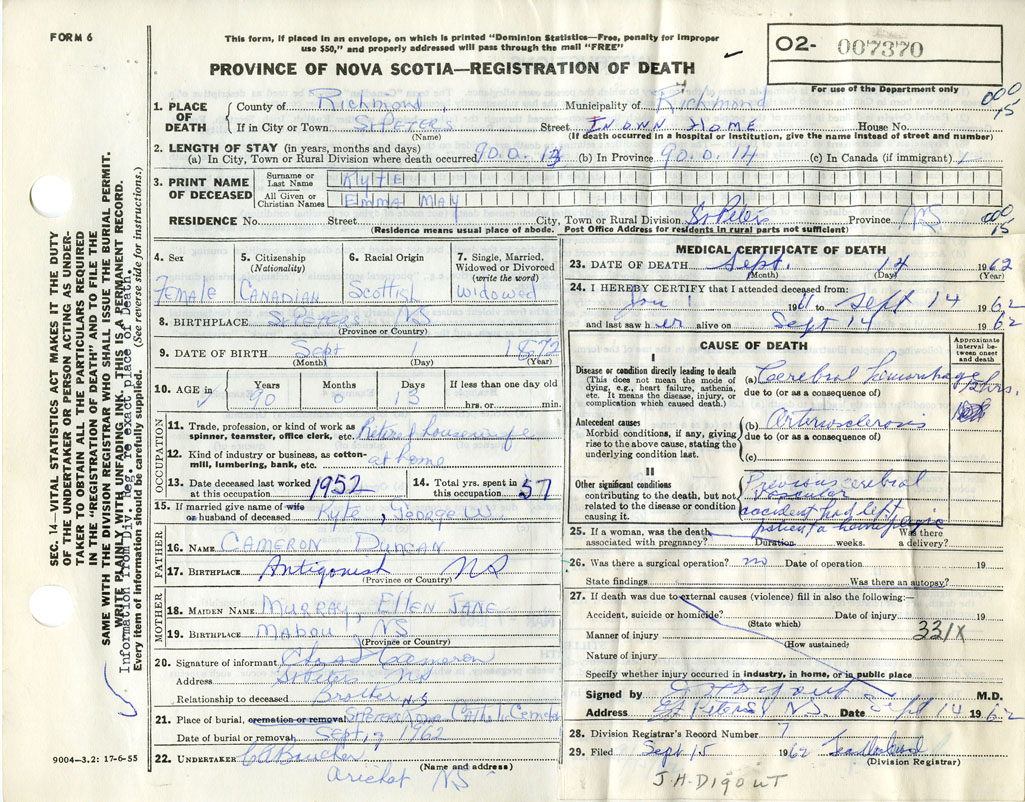 FORM 6
This form, if placed in an envelope, on which is printed "Dominion Statistics—Free, penalty for improper
use $50," and properly addressed will pass through the mail "FREE"
02- 007370
PROVINCE OF NOVA SCOTIA—REGISTRATION OF DEATH
For use of the Department only
000
15
1. PLACE OF DEATH
County of Richmond Municipality of Richmond
If in City or Town St Peter's Street IN OWN HOME House No.
(Name) (If death occurred in a hospital or institution, give the name instead of street and number)
2. LENGTH OF STAY (in years, months and days)
(a) In City, Town or Rural Division where death occurred 90.0.13 (b) In Province 90.0.14 (c) In Canada (if immigrant)
3. PRINT NAME OF DECEASED
Surname or Last Name KYTE
All Given or Christian Names EMMA MAY
RESIDENCE No. Street City, Town or Rural Division St Peters Province NS
000
15
(Residence means usual place of abode. Post Office Address for residents in rural parts not sufficient)
4. Sex
Female
5. Citizenship
(Nationality)
Canadian
6. Racial Origin
Scottish
7. Single, Married,
Widowed or Divorced
(write the word)
Widowed
8. BIRTHPLACE St Peters NS
(Province or Country)
9. DATE OF BIRTH Sept 1 1872
(Month) (Day) (Year)
10. AGE in
Years Months Days If less than one day old
90 0 13 hrs. or min.
OCCUPATION
11. Trade, profession, or kind of work as
spinner, teamster, office clerk, etc. Retired housewife
12. Kind of industry or business, as cotton-
mill, lumbering, bank, etc. at home
13. Date deceased last worked
at this occupation 1952
14. Total yrs. spent in
this occupation 57
15. If married give name of wife
or husband of deceased Kyte, George W.
FATHER
16. NAME CAMERON, Duncan
17. BIRTHPLACE Antigonish NS
(Province or Country)
MOTHER
18. MAIDEN NAME Murray, Ellen Jane
19. BIRTHPLACE Mabou, NS
(Province or Country)
20. Signature of informant Chas J Cameron
Address St Peters NS
Relationship to deceased Brother N.S
21. Place of burial, cremation or removal St Peters Cemetery
Date of burial or removal Sept, 1962
22. UNDERTAKER
(Name and address)
Arichat NS
MEDICAL CERTIFICATE OF DEATH
23. DATE OF DEATH Sept. 14 1962
(Month) (Day) (Year)
24. I HEREBY CERTIFY that I attended deceased from:
Jan 1 19 to Sept 14 1962
and last saw her alive on Sept 14 1962
CAUSE OF DEATH
Approximate
interval be-
tween onset
and death
I
Disease or condition directly leading to death
(This does not mean the mode of
dying, e.g., heart failure, asthenia,
etc. It means the disease, injury, or
complication which caused death.)
(a) Cerebral hemorrhage 12 hrs.
due to (or as a consequence of)
Antecedent causes
Morbid conditions, if any, giving
rise to the above cause, stating the
underlying condition last.
(b) Arteriosclerosis
due to (or as a consequence of)
(c)
II
Other significant conditions
contributing to the death, but not
related to the disease or condition
causing it.
Previous cerebral
vascular
accident had left
patient a hemiplegic
25. If a woman, was the death
associated with pregnancy? Duration weeks. Was there
a delivery?
26. Was there a surgical operation? no Date of operation 19
State findings Was there an autopsy?
27. If death was due to external causes (violence) fill in also the following:—
Accident, suicide or homicide? Date of injury 19
(State which)
331X
Manner of injury
(How sustained)
Nature of injury
Specify whether injury occurred in industry, in home, or in public place
Signed by J H Digout M.D.
Address St Peters, NS. Date Sept 14 1962
28. Division Registrar's Record Number 7
29. Filed Sept 15 1962
(Division Registrar)
J.H-DIGOUT
9004—3.2: 17-6-55
SEC. 14—VITAL STATISTICS ACT MAKES IT THE DUTY
OF THE UNDERTAKER OR PERSON ACTING AS UNDER-
TAKER TO OBTAIN ALL THE PARTICULARS REQUIRED
IN THE "REGISTRATION OF DEATH" AND TO FILE THE
SAME WITH THE DIVISION REGISTRAR WHO SHALL ISSUE THE BURIAL PERMIT.
WRITE PLAINLY WITH UNFADING INK. THIS IS A PERMANENT RECORD.
Information from Div. Reg. re exact place of Death.
Every item of information should be carefully supplied. (See reverse side for instructions.)